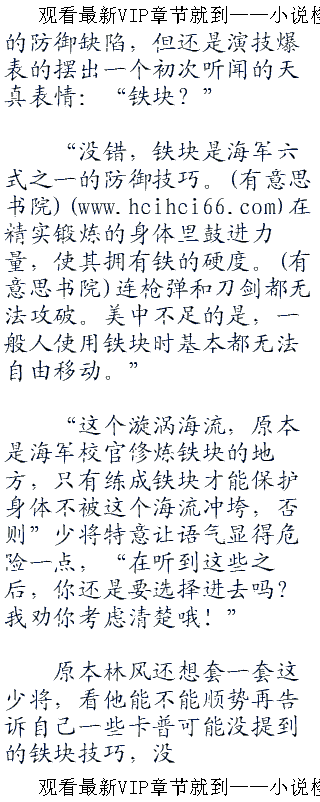 观看最新VIP章节就到——小说检
的防御缺陷，但还是演技爆
表的摆出一个初次听闻的天
真表情：“铁块？”
“没错，铁块是海军六
式之一的防御技巧。(有意思
书院)(www.hcihci66.com)在
精实锻炼的身体里鼓进力
量，使其拥有铁的硬度。(有
意思书院)连枪弹和刀剑都无
法攻破。美中不足的是，一
般人使用铁块时基本都无法
自由移动。”
“这个漩涡海流，原本
是海军校官修炼铁块的地
方，只有练成铁块才能保护
身体不被这个海流冲垮，否
则”少将特意让语气显得危
险一点，“在听到这些之
后，你还是要选择进去吗？
我劝你考虑清楚哦！”
原本林风还想套一套这
少将，看他能不能顺势再告
诉自己一些卡普可能没提到
的铁块技巧，没
观看最新VIP章节就到——小说检